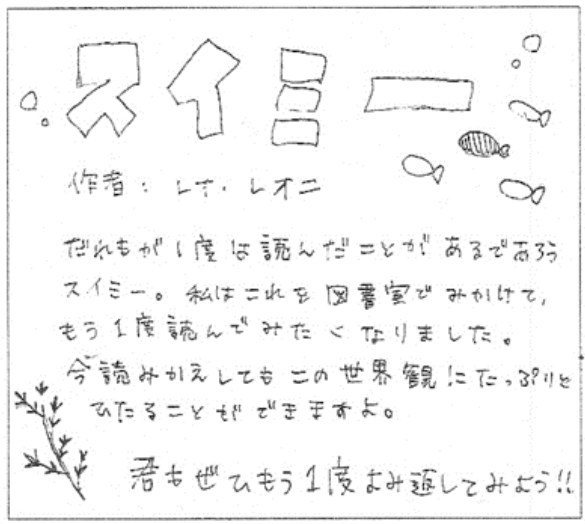 スイミー
作者：レオ・レオニ
だれもが1度は読んだことがあるであろう
スイミー。私はこれを図書室でみかけて、
もう1度読んでみたくなりました。
今読みかえしてもこの世界観にたっぷりと
ひたることができますよ。
君もぜひもう1度よみ返してみよう!!